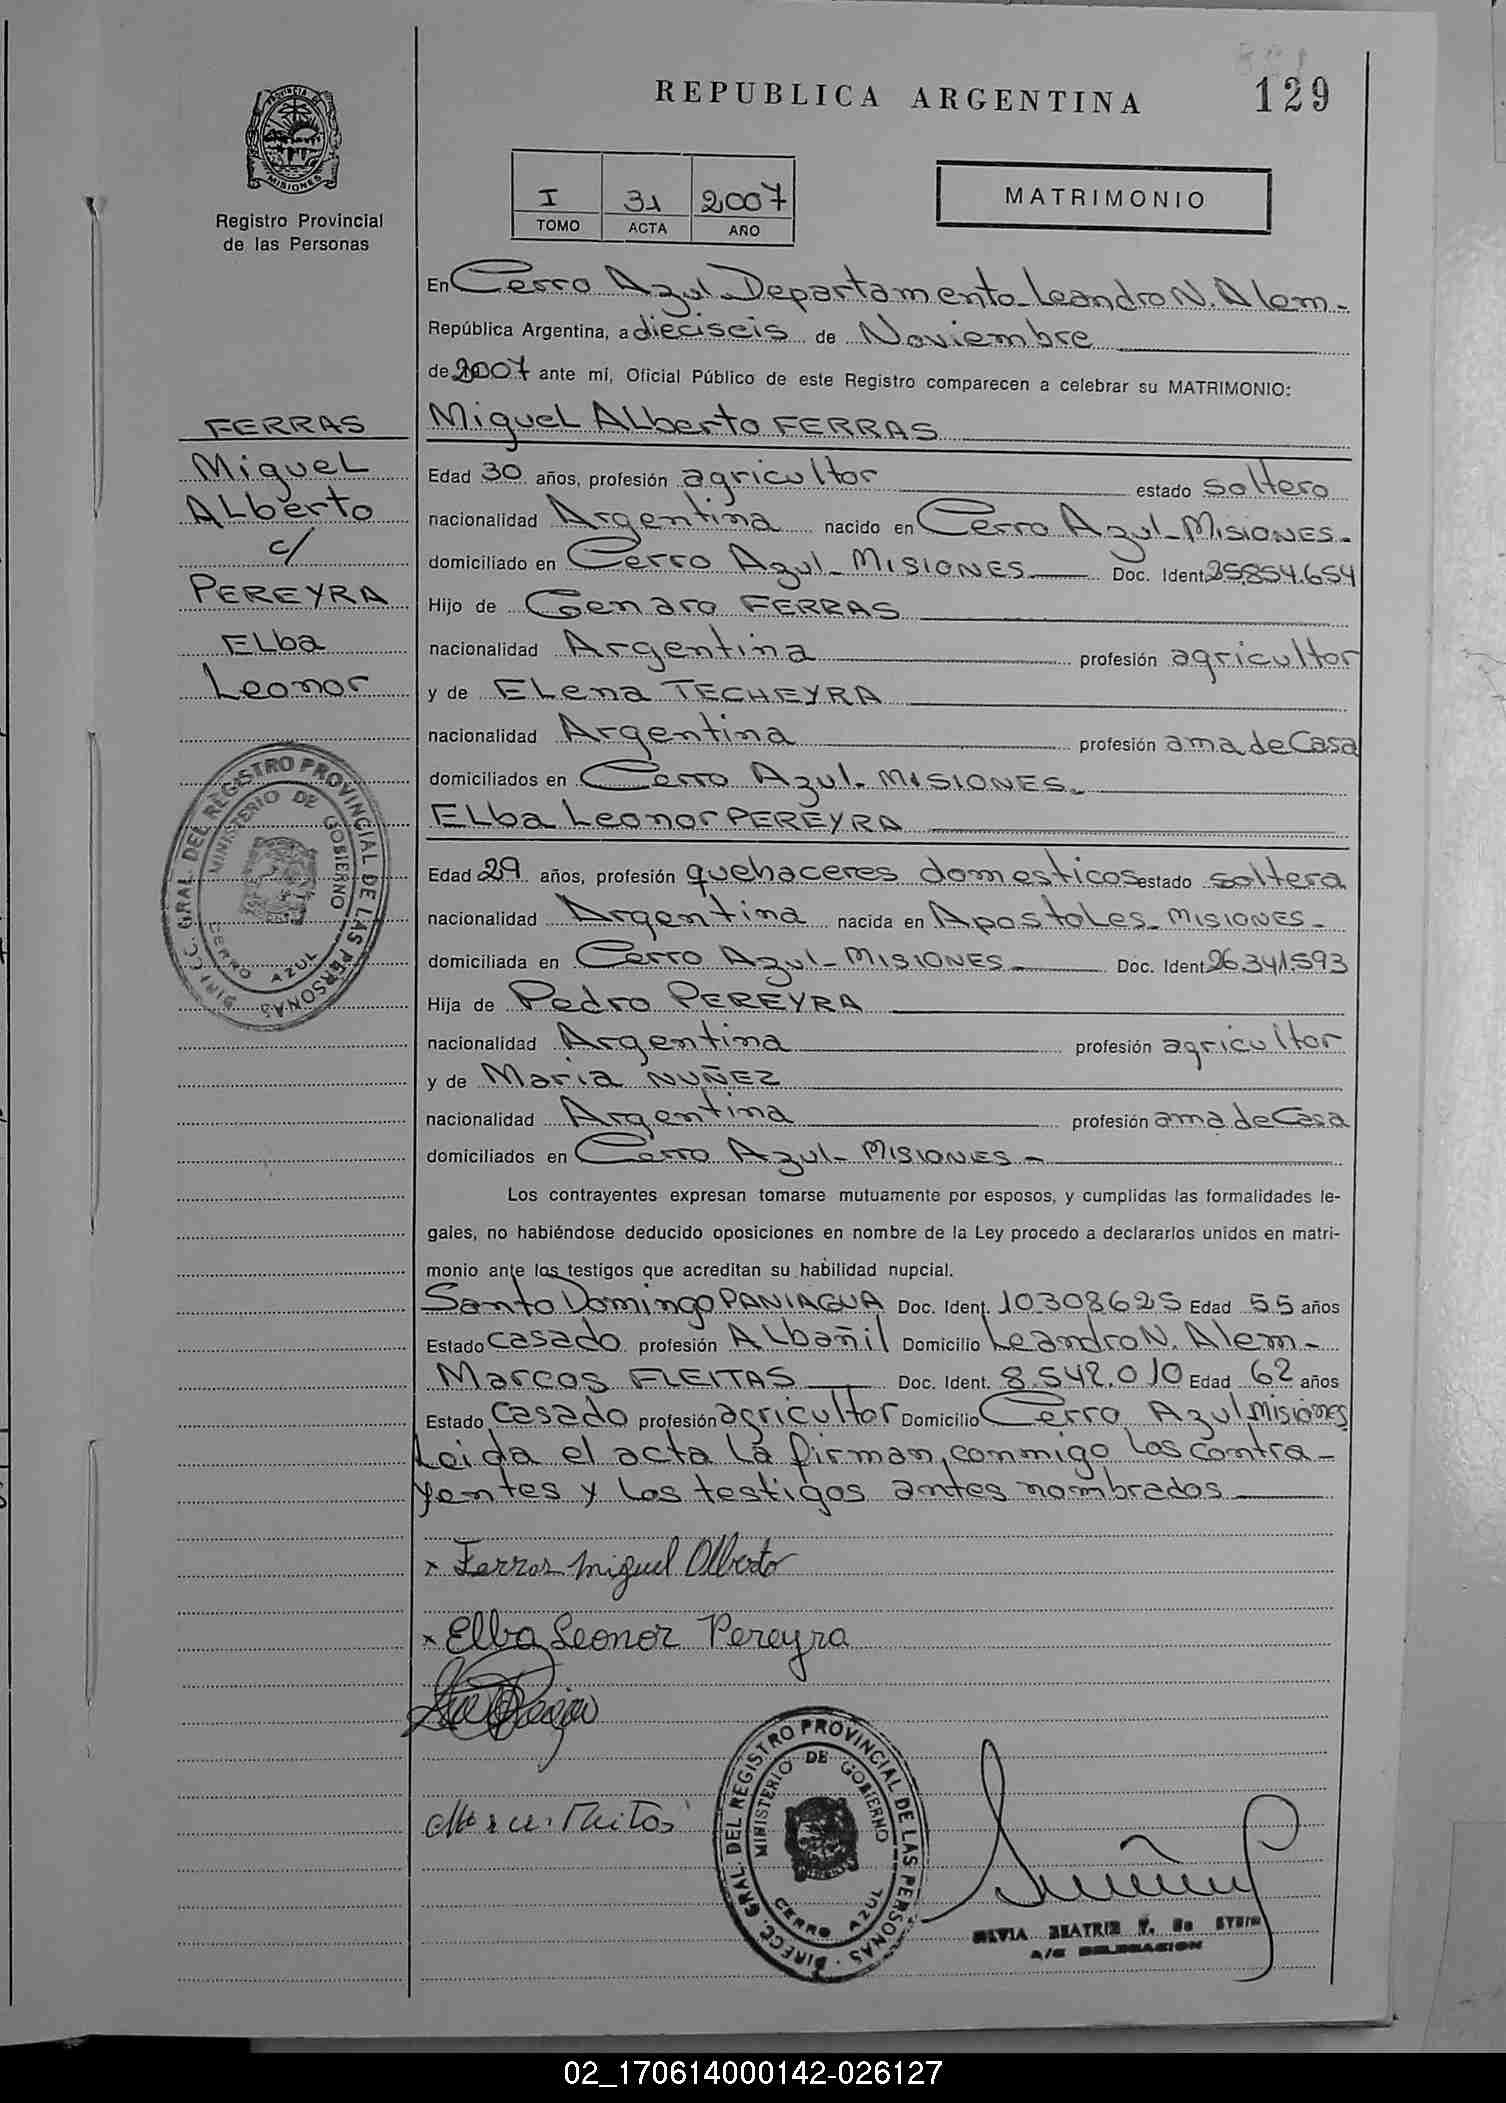 REPUBLICA ARGENTINA
129
PROVINCIA DE
MISIONES
Registro Provincial
de las Personas
I 31 2007
TOMO ACTA AÑO
MATRIMONIO
En Cerro Azul-Departamento-Leandro N. Alem-
República Argentina, a dieciseis de Noviembre
de 2007 ante mí, Oficial Público de este Registro comparecen a celebrar su MATRIMONIO:
FERRAS
Miguel
Alberto
c/
PEREYRA
Elba
Leonor
Miguel Alberto FERRAS
Edad 30 años, profesión agricultor estado soltero
nacionalidad Argentina nacido en Cerro Azul-Misiones-
domiciliado en Cerro Azul-Misiones Doc. Ident. 25.854.654
Hijo de Genaro FERRAS
nacionalidad Argentina profesión agricultor
y de Elena TECHEYRA
nacionalidad Argentina profesión ama de Casa
domiciliados en Cerro Azul-Misiones-
Elba Leonor PEREYRA
Edad 29 años, profesión quehaceres domesticos estado soltera
nacionalidad Argentina nacida en Apostoles-Misiones-
domiciliada en Cerro Azul-Misiones- Doc. Ident. 26.341.593
Hija de Pedro PEREYRA
nacionalidad Argentina profesión agricultor
y de Maria NUÑEZ
nacionalidad Argentina profesión ama de Casa
domiciliados en Cerro Azul-Misiones-
Los contrayentes expresan tomarse mutuamente por esposos, y cumplidas las formalidades le-
gales, no habiéndose deducido oposiciones en nombre de la Ley procedo a declararlos unidos en matri-
monio ante los testigos que acreditan su habilidad nupcial.
Santo Domingo PANIAGUA Doc. Ident. 10.308.625 Edad 55 años
Estado casado profesión Albañil Domicilio Leandro N. Alem-
Marcos FLEITAS Doc. Ident. 8.542.010 Edad 62 años
Estado Casado profesión agricultor Domicilio Cerro Azul Misiones
Leida el acta la firman, conmigo los contra-
yentes y los testigos antes nombrados
x Ferras Miguel Alberto
x Elba Leonor Pereyra
DIRECC. GRAL. DEL REGISTRO PROVINCIAL DE LAS PERSONAS
MINISTERIO DE GOBIERNO
CERRO AZUL
DIRECC. GRAL. DEL REGISTRO PROVINCIAL DE LAS PERSONAS
MINISTERIO DE GOBIERNO
CERRO AZUL
SILVIA BEATRIZ
A/C DELEGACION
02_170614000142-026127